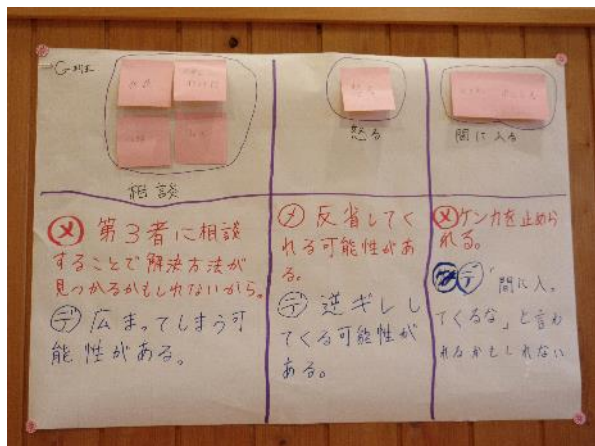 G
相談
怒る
間に入る
メ 第3者に相談
することで解決方法が
見つかるかもしれないから。
デ 広まってしまう可
能性がある。
メ 反省してく
れる可能性があ
る。
デ 逆ギレし
てくる可能性が
ある。
メ ケンカを止めら
れる。
デ 「間に入っ
てくるな」と言わ
れるかもしれない